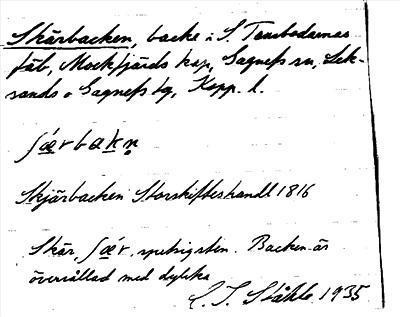 Skärbacken, backe i S Tansbodarnas
fäb, Mockfjärds kap, Gagnefs sn, Lek-
sands o Gagnefs tg, Kopp. l.
ʃǽrbakn̥
Skjärbacken Storskifteshandl 1816
Skär, ʃǽr, spetsig sten. Backen är
översållad med dylika
1935